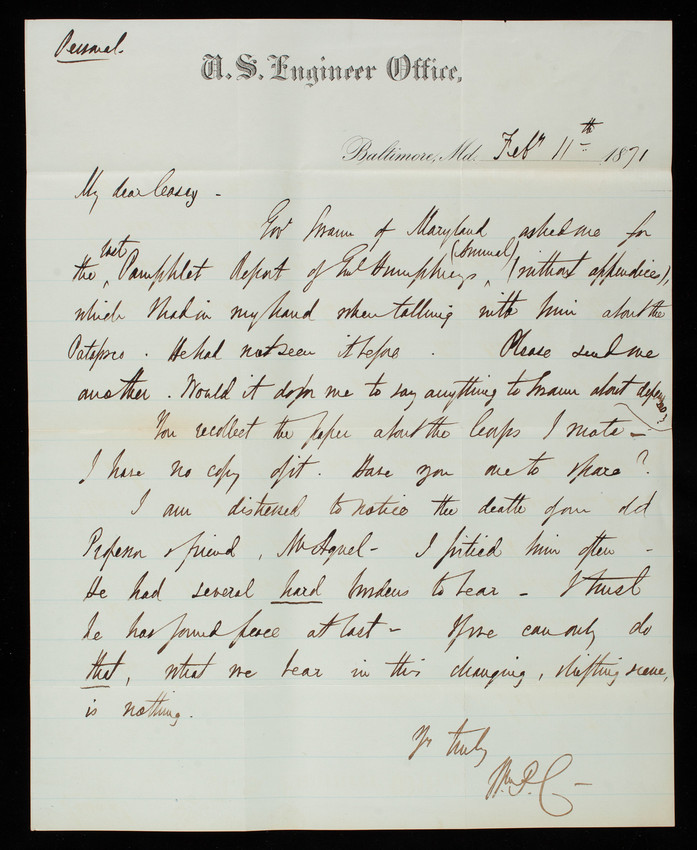 Personal.
U. S. Engineer Office,
Baltimore, Md. Feby 11th 1871
My dear Casey -
Govr Swann of Maryland asked me for
the last Pamphlet Report of Genl Humphreys, (Annual) (without appendices),
which I had in my hand when talking with him about the
Patapsco. He had not seen it before. Please send me
another. Would it do for me to say anything to Swann about
You recollect the paper about the Corps I wrote -
I have no copy of it. Have you one to spare?
I am distressed to notice the death of our old
Professor & friend, Mr Agnel - I pitied him often -
He had several hard burdens to bear - I trust
he has found peace at last - If we can only do
that, what we bear in this changing, shifting scene,
is nothing.
Yr truly
Wm. P. C -